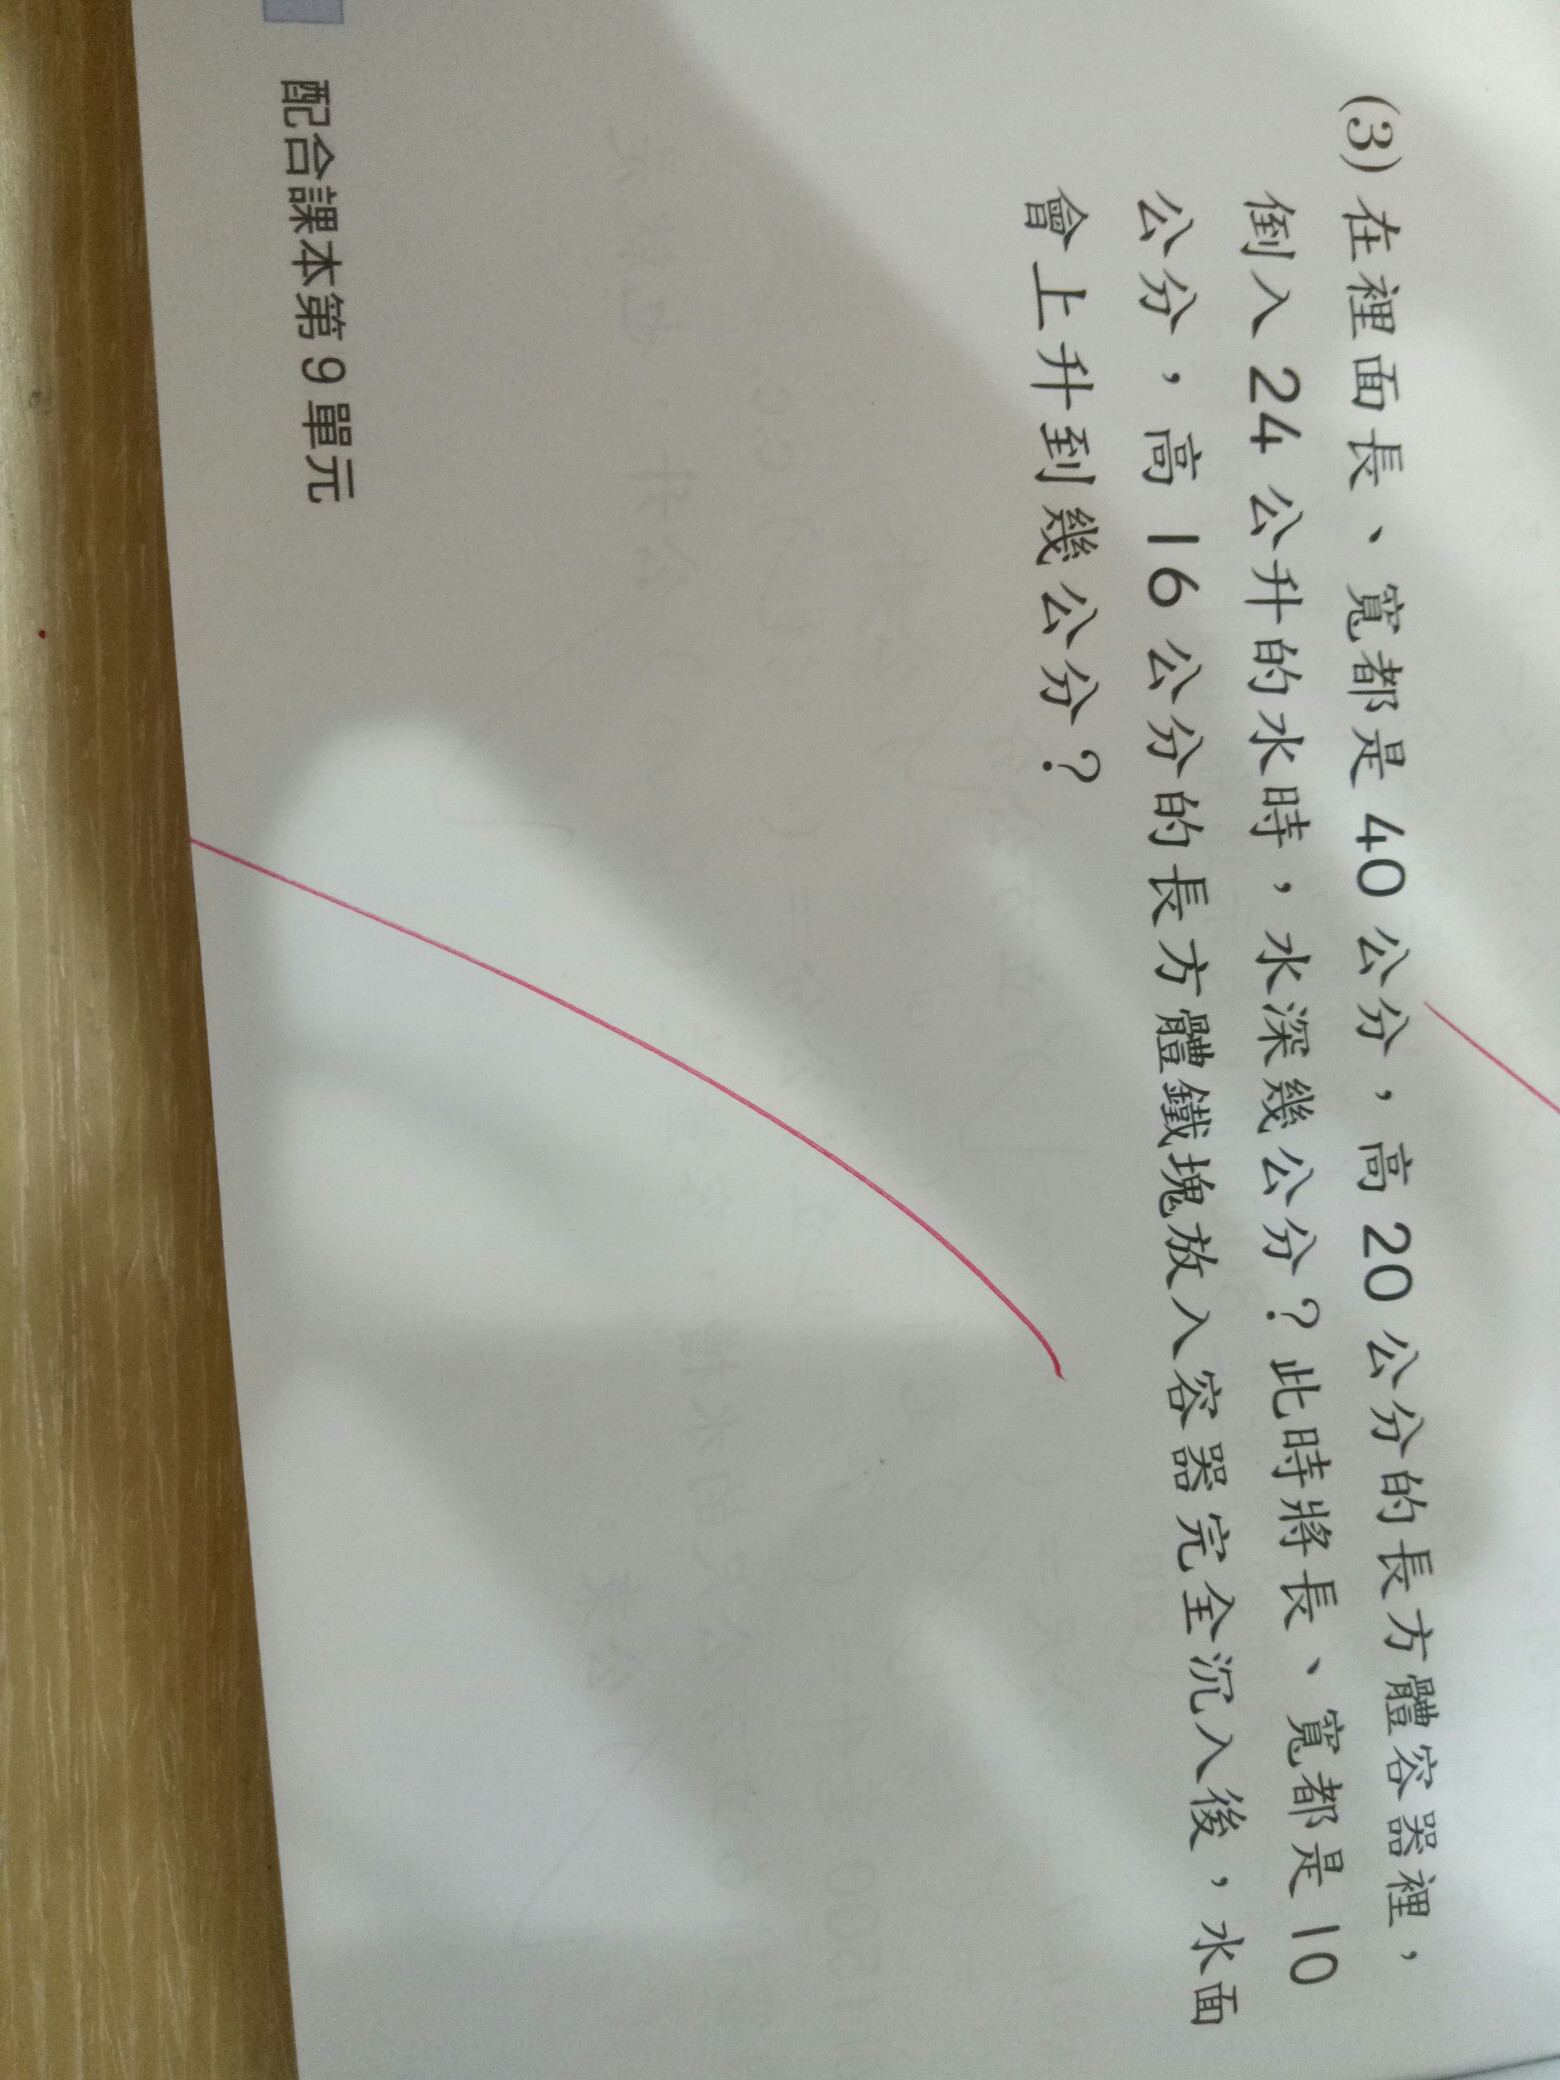 (3) 在裡面長、寬都是 40 公分，高 20 公分的長方體容器裡，
倒入 24 公升的水時，水深幾公分？此時將長、寬都是 10
公分，高 16 公分的長方體鐵塊放入容器完全沉入後，水面
會上升到幾公分？
配合課本第 9 單元